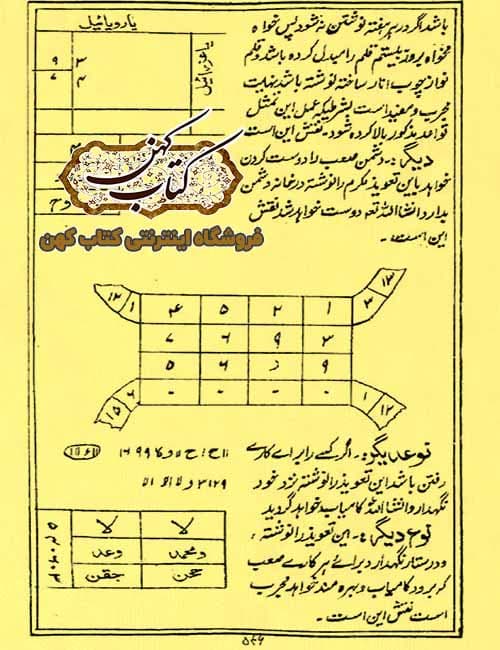 باشد اگر در سر هفته نوشتن نه شود پس خواه
مخواه بروز بیستم قلم را مبدل کرده باشد و قلم
نو از چوب انار ساخته نوشته باشد نهایت
مجرب و مفید است بشرطیکه عمل این تمثل
قواعد مذکور بالا کرده شود۔ نقش این است
دیگر:۔ دشمن صعب را دوست کردن
خواهد باین تعویذ مکرم را نوشته در خانه دشمن
بدارد انشاالله تعه دوست خواهد شد نقش
این است۔
یا رویائیل
یا عزرائیل
۹ ۳
۷ ۴
وح
کتاب کهن
فروشگاه اینترنتی کتاب کهن
۱ ۴ ۵ ۲ ۱ ۳ ۱۳
۷ ۶ ۹ ۳
۵ ۶ ۹
۱۵ ۶ ۱ ۱۲
نوعدیگر:۔ اگر کسے را برایے کارے
رفتن باشد این تعویذ را نوشته نزد خود
نگهدارد انشاالله کامیاب خواهد گردید
نوع دیگر:۔ این تعویذ را نوشته
و در ستار نگهدارد برایے هر کارے صعب
که برود کامیاب و بهره مند خواهد مجرب
است نقش این است۔
۳۱۲۹
لا لا
ومحمد وعد
جقن
۵۴۶